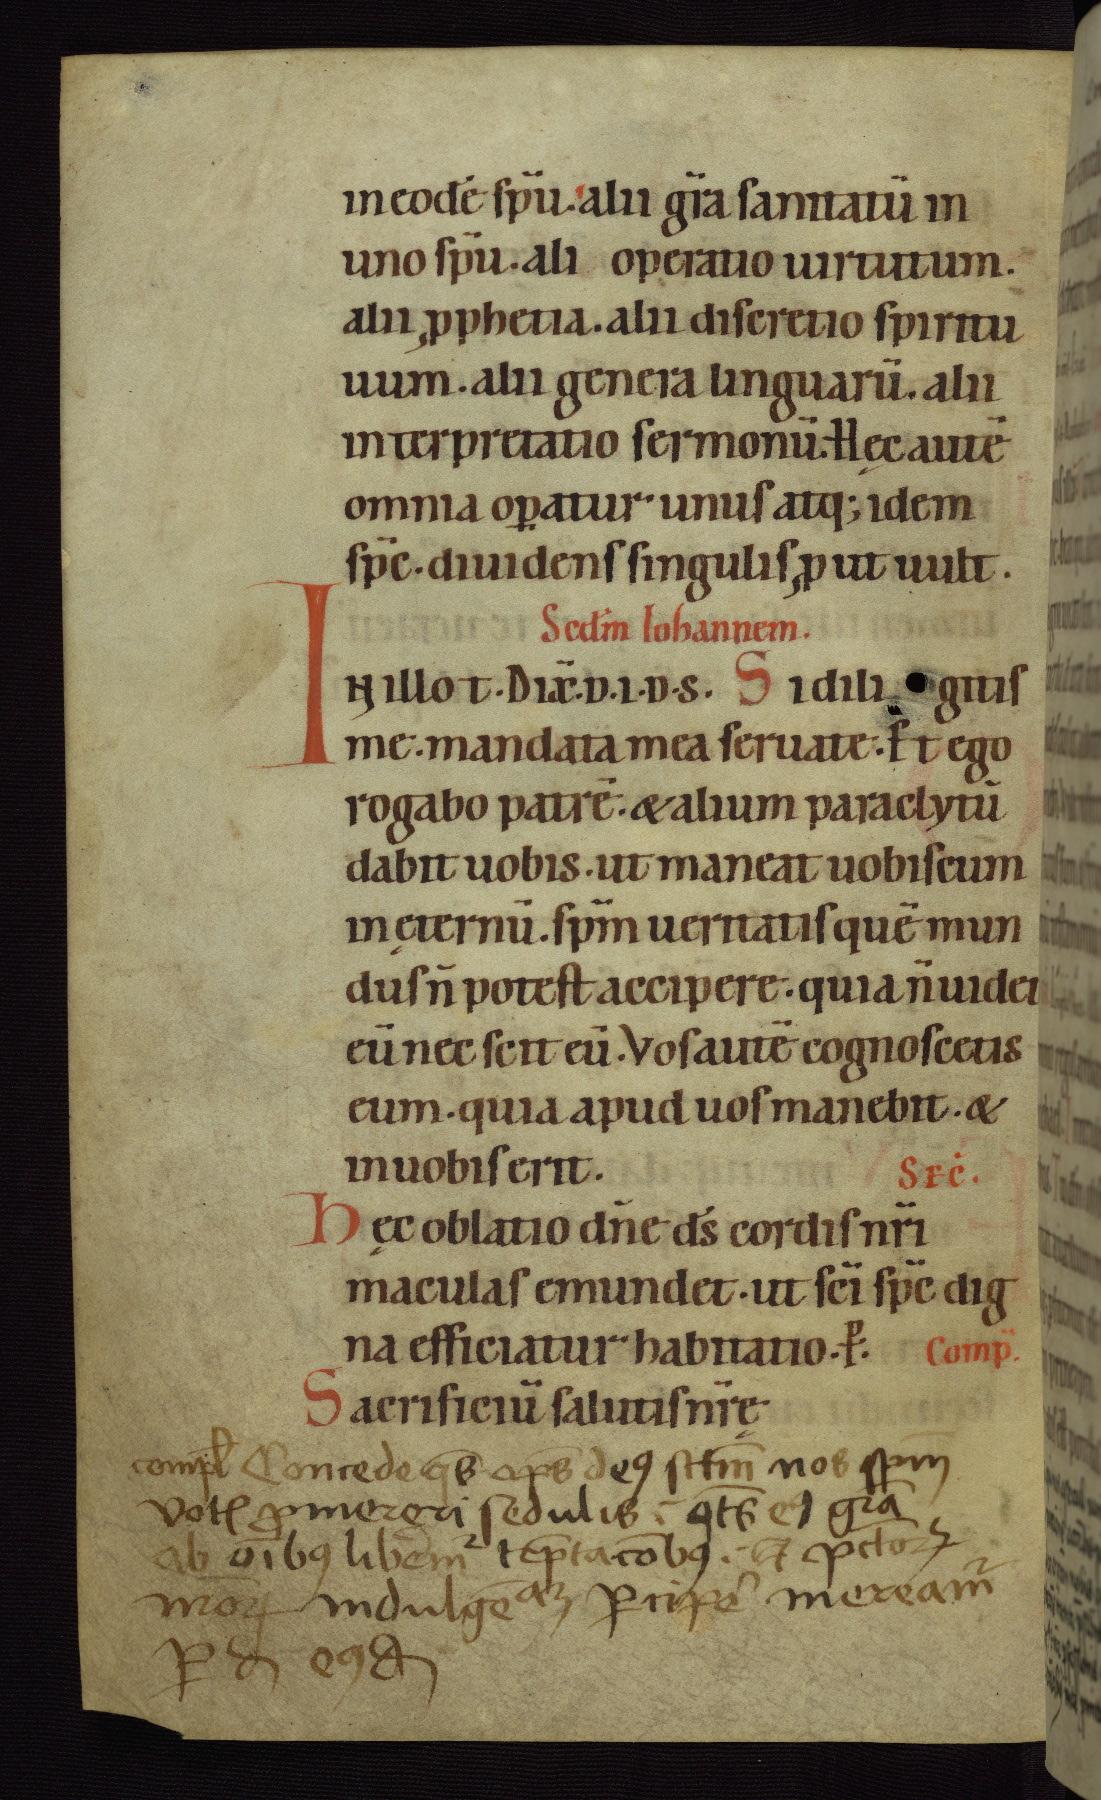 in eodē sp̄u. alii gr̄a sanitatū in
uno sp̄u. ali operatio uirtutum.
alii ꝓphetia. alii discretio spiritu
uum. alii genera linguarū. alii
interpretatio sermonū. Hęc autē
omnia oꝑatur unus atq; idem
sp̄c. diuidens singulis ꝓut uult.
Scd̄m Iohannem.
In illo t. Dix̄. D. I. D. S. Si dili gitis
me. mandata mea seruate. Et ego
rogabo patrē. & alium paraclytū
dabit uobis. ut maneat uobiscum
in ęternū. sp̄m ueritatis quē mun
dus n̄ potest accipere. quia n̄ uidet
eū nec scit eū. Vos autē cognoscetis
eum. quia apud uos manebit. &
in uobis erit. Sec̄.
Hęc oblatio dn̄e ds̄ cordis nr̄i
maculas emundet. ut sc̄i sp̄c dig
na efficiatur habitatio. ꝑ. Comp̄.
Sacrificiū salutis nr̄ę
compl̄ Concede qs̄ op̄s deꝯ sctm̄ nos sp̄m
votꝭ ꝓmereri sedulis qts̄ eꝯ gr̄a
ab oībꝯ liberem̄ tēptacōbꝯ et pctorꝝ
nr̄orꝝ indulgē ꝑcipe mereamr̄
ꝑ d eꝯd